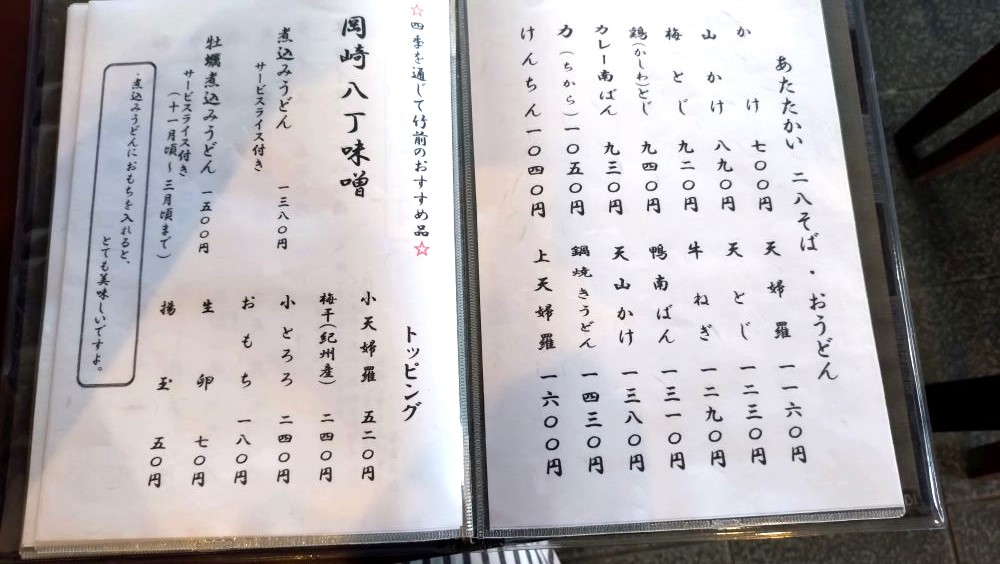 あたたかい 二八そば・おうどん
かけ 七〇〇円
山かけ 八九〇円
梅とじ 九二〇円
鶏(かしわ)とじ 九四〇円
カレー南ばん 九三〇円
力(ちから) 一〇五〇円
けんちん 一〇四〇円
天婦羅 一一六〇円
天とじ 一二三〇円
牛ねぎ 一二九〇円
鴨南ばん 一三一〇円
天山かけ 一三八〇円
鍋焼きうどん 一四三〇円
上天婦羅 一六〇〇円
☆四季を通じて竹前のおすすめ品☆
岡崎八丁味噌
煮込みうどん 一三八〇円
サービスライス付き
牡蠣煮込みうどん 一五〇〇円
サービスライス付き
(十一月頃~三月頃まで)
・煮込みうどんにおもちを入れると、
とても美味しいですよ。
トッピング
小天婦羅 五二〇円
梅干(紀州産) 二四〇円
小とろろ 二四〇円
おもち 一八〇円
生卵 七〇円
揚玉 五〇円